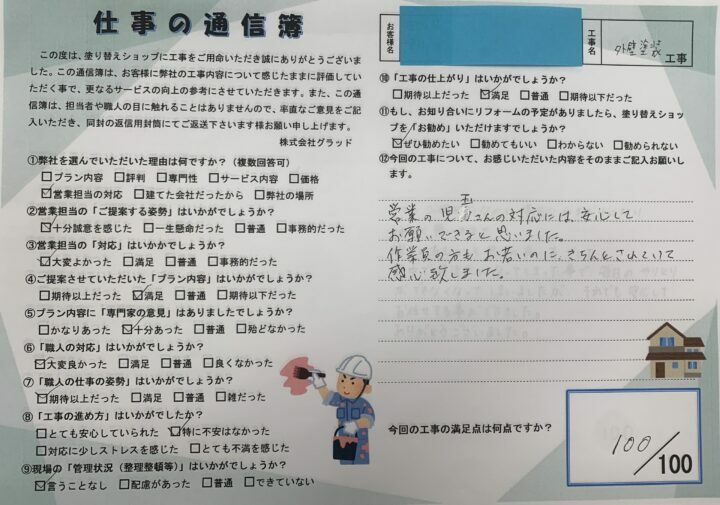 仕事の通信簿
この度は、塗り替えショップに工事をご用命いただき誠にありがとうござい
ました。この通信簿は、お客様に弊社の工事内容について感じたままに評価してい
ただく事で、更なるサービスの向上の参考にさせていただきます。また、この通信
簿は、担当者や職人の目に触れることはありませんので、率直なご意見をご
記入いただき、同封の返信用封筒にてご返送下さいます様お願い申し上げます。
株式会社グラッド
①弊社を選んでいただいた理由は何ですか?(複数回答可)
□プラン内容 □評判 □専門性 □サービス内容 □価格
☑営業担当の対応 □建てた会社だったから □弊社の場所
②営業担当の「ご提案する姿勢」はいかがでしょうか?
☑十分誠意を感じた □一生懸命だった □普通 □事務的だった
③営業担当の「対応」はいかがでしょうか?
☑大変よかった □満足 □普通 □事務的だった
④ご提案させていただいた「プラン内容」はいかがでしょうか?
□期待以上だった ☑満足 □普通 □期待以下だった
⑤プラン内容に「専門家の意見」はありましたでしょうか?
□かなりあった ☑十分あった □普通 □殆どなかった
⑥「職人の対応」はいかがでしょうか?
☑大変良かった □満足 □普通 □良くなかった
⑦「職人の仕事の姿勢」はいかがでしょうか?
☑期待以上だった □満足 □普通 □雑だった
⑧「工事の進め方」はいかがでしたか?
□とても安心していられた ☑特に不安はなかった
□対応に少しストレスを感じた □とても不満を感じた
⑨現場の「管理状況(整理整頓等)」はいかがでしょうか?
☑言うことなし □配慮があった □普通 □できていない
お客様名
工事名
外壁塗装工事
⑩「工事の仕上がり」はいかがでしょうか?
□期待以上だった ☑満足 □普通 □期待以下だった
⑪もし、お知り合いにリフォームの予定がありましたら、塗り替えショッ
プを「お勧め」いただけますでしょうか?
☑ぜひ勧めたい □勧めてもいい □わからない □勧められない
⑫今回の工事について、お感じいただいた内容をそのままご記入お願いし
ます。
営業の児玉さんの対応には、安心して
お願いできると思いました。
作業員の方も、お若いのに、きちんとされていて
感心致しました。
今回の工事の満足点は何点ですか?
100/100